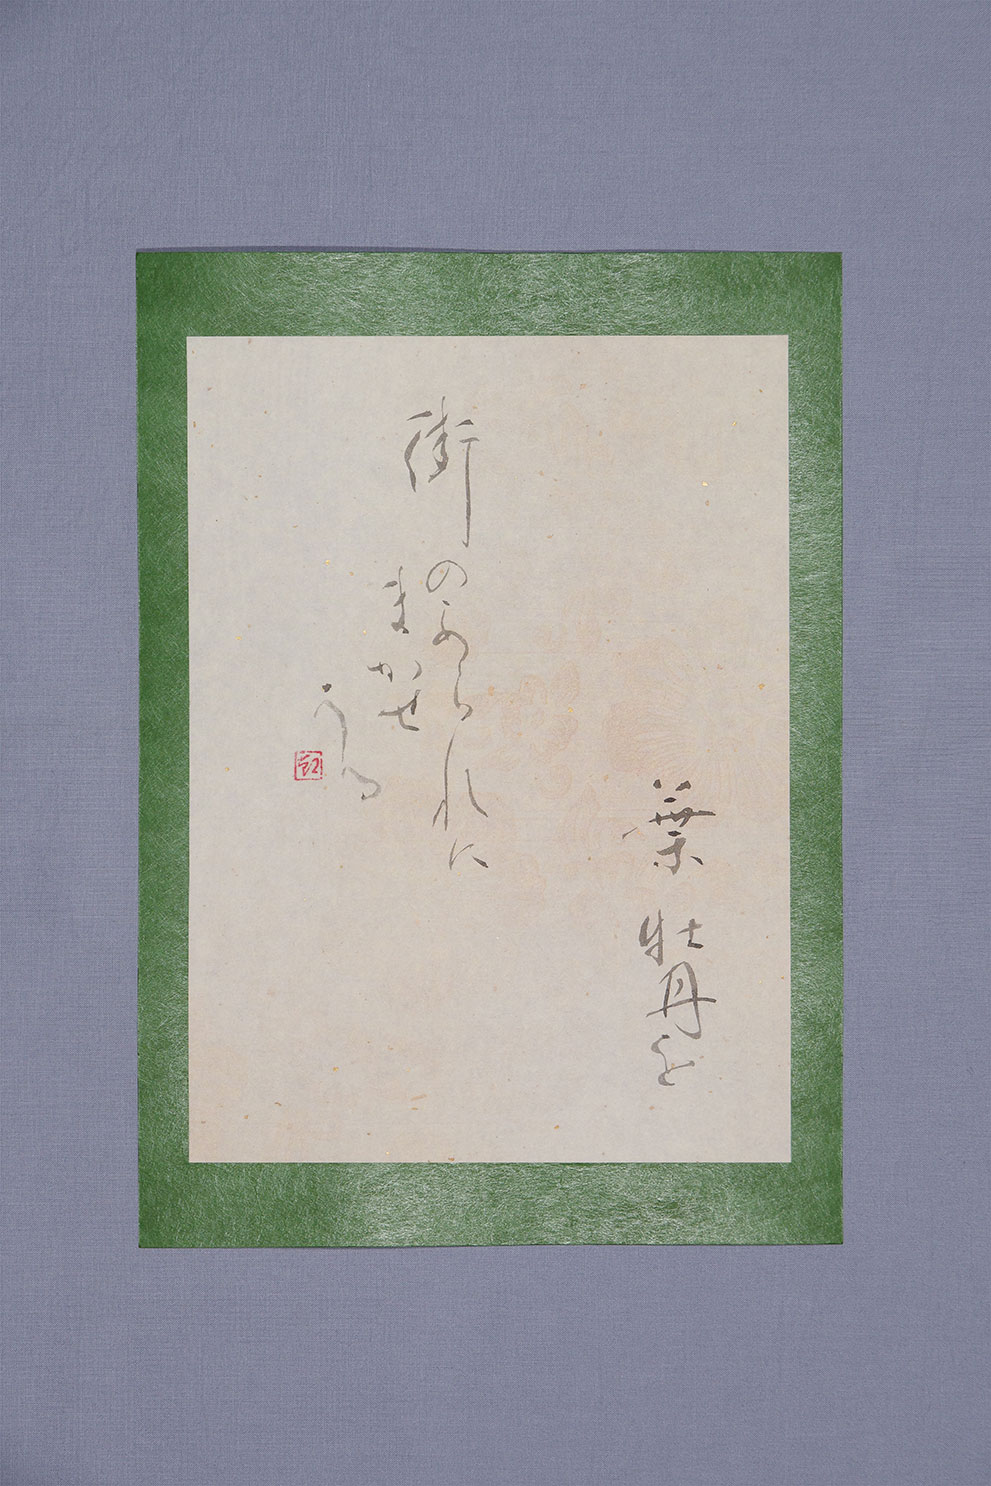 葉牡丹を
街のあられに
まかせ
うる